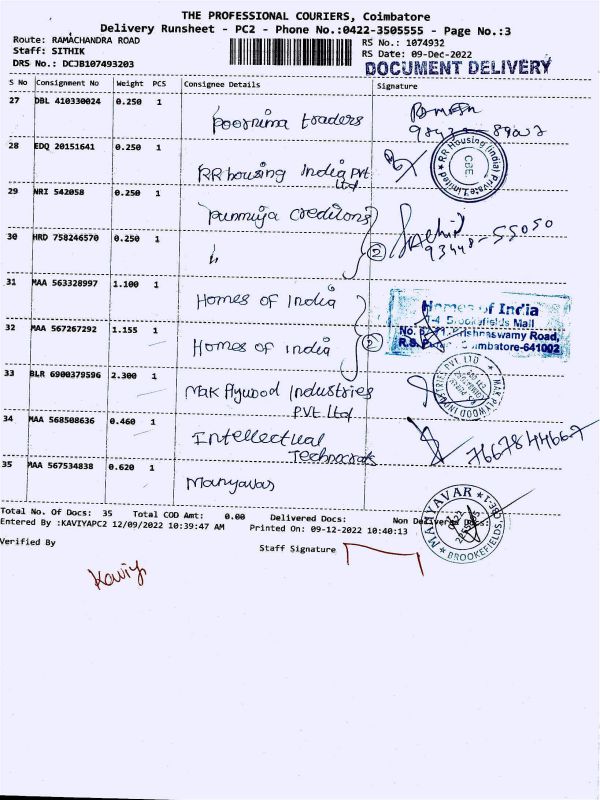 THE PROFESSIONAL COURIERS, Coimbatore
Delivery Runsheet - PC2 - Phone No.:0422-3505555 - Page No.:3
Route: RAMACHANDRA ROAD
RS No.: 1074932
Staff: SITHIK
RS Date: 09-Dec-2022
DRS No.: DCJB107493203
DOCUMENT DELIVERY
S No Consignment No Weight PCS Consignee Details Signature
27 DBL 410330024 0.250 1 poornima traders
28 EDQ 20151641 0.250 1 RR housing India Pvt Ltd
RR Housing (India) Private Limited CBE
29 NRI 542058 0.250 1
30 HRD 758246570 0.250 1 "
2
93448-55050
31 MAA 563328997 1.100 1 Homes of India
32 MAA 567267292 1.155 1 Homes of India
2
Homes of India
Brookefields Mall
Krishnaswamy Road,
Coimbatore-641002
33 BLR 6900379596 2.300 1 Mak Plywood Industries Pvt. Ltd
MAK PLYWOOD INDUSTRIES PVT LTD
34 MAA 568508636 0.460 1 Intellectual Technocrats
7667844667
35 MAA 567534838 0.620 1 Manyavar
Total No. Of Docs: 35 Total COD Amt: 0.00 Delivered Docs: Non Delivered Docs:
MANYAVAR
BROOKEFIELDS,
Entered By :KAVIYAPC2 12/09/2022 10:39:47 AM Printed On: 09-12-2022 10:40:13
Verified By Staff Signature